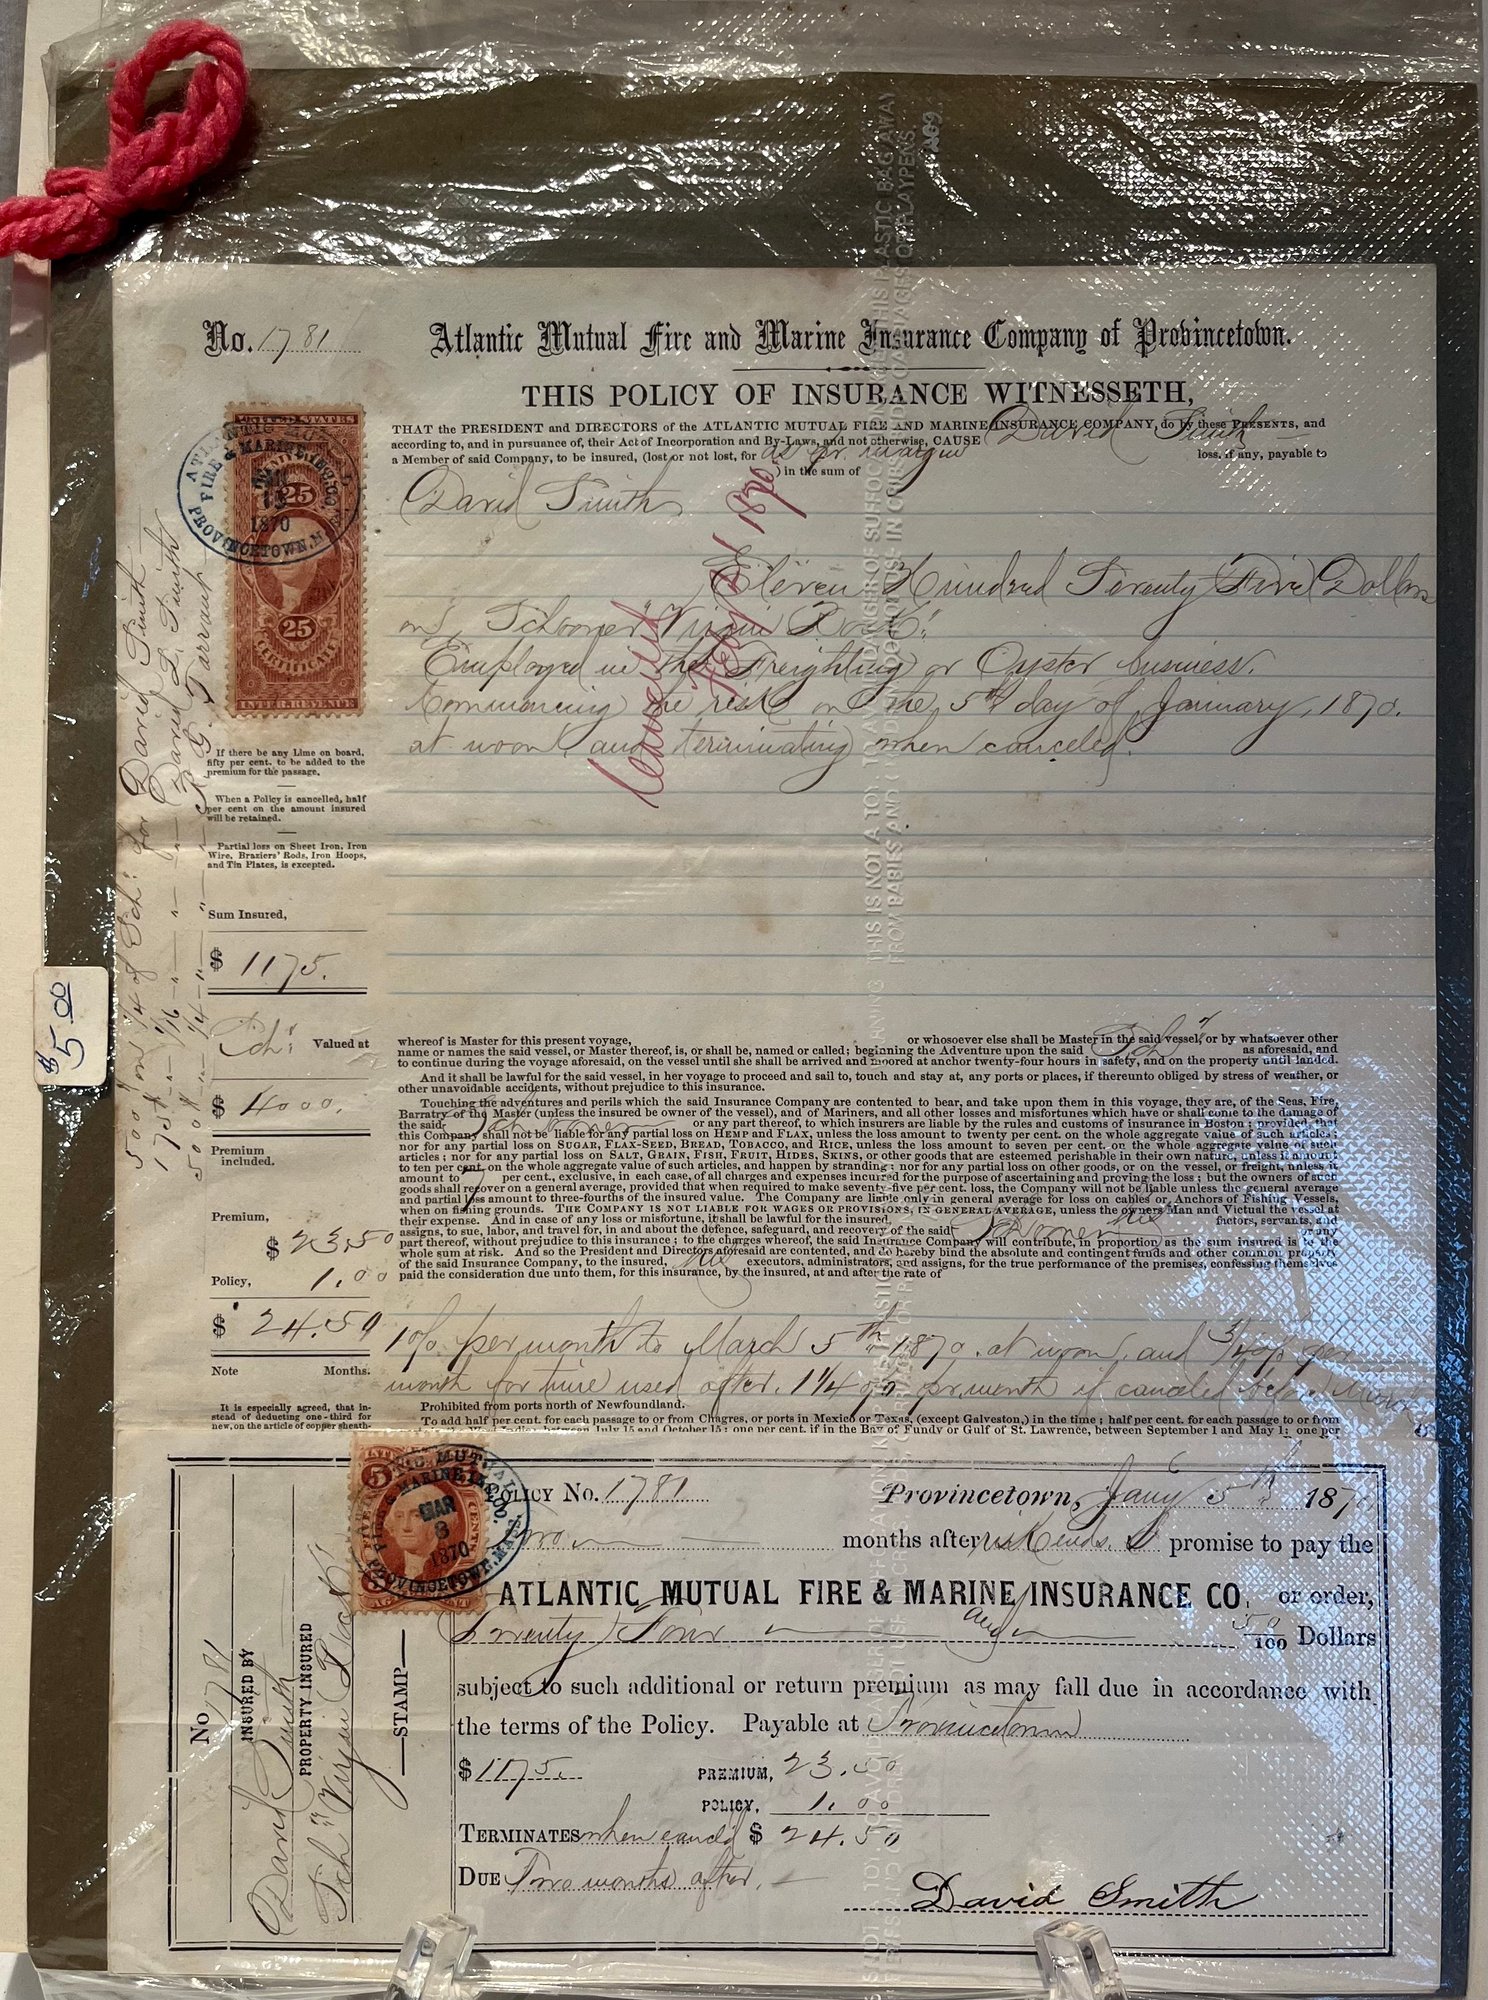 No. 1781
Atlantic Mutual Fire and Marine Insurance Company of Provincetown.
THIS POLICY OF INSURANCE WITNESSETH,
THAT the PRESIDENT and DIRECTORS of the ATLANTIC MUTUAL FIRE AND MARINE INSURANCE COMPANY, do by these PRESENTS, and
according to, and in pursuance of, their Act of Incorporation and By-Laws, and not otherwise, CAUSE David Smith
a Member of said Company, to be insured, (lost or not lost, for as pr. margin loss, if any, payable to
) in the sum of
David Smith
Eleven Hundred Seventy Five Dollars
on Schooner "Virgin Rock".
Employed in the Freighting or Oyster business.
Commencing the risk on the 5th day of January, 1870.
at noon and terminating when canceled.
Canceled
1870
ATLANTIC MUTUAL
FIRE & MARINE INS. CO.
1870
PROVINCETOWN, M
UNITED STATES
25 25
25
CERTIFICATE
INTER. REVENUE
500 " on 1/4 of Sch: for David Smith
175 " " 1/16 " " " David L. Smith
500 " " 1/4 " " " G. Tarrant
If there be any Lime on board,
fifty per cent. to be added to the
premium for the passage.
When a Policy is cancelled, half
per cent on the amount insured
will be retained.
Partial loss on Sheet Iron, Iron
Wire, Braziers' Rods, Iron Hoops,
and Tin Plates, is excepted.
Sum Insured,
$ 1175.
Sch: Valued at
$ 4000.
Premium
included.
Premium,
$ 23.50
Policy, 1.00
$ 24.50
Note Months.
It is especially agreed, that in-
stead of deducting one-third for
new, on the article of copper sheath-
whereof is Master for this present voyage, or whosoever else shall be Master in the said vessel, or by whatsoever other
name or names the said vessel, or Master thereof, is, or shall be, named or called; beginning the Adventure upon the said Sch: as aforesaid, and
to continue during the voyage aforesaid, on the vessel until she shall be arrived and moored at anchor twenty-four hours in safety, and on the property until landed.
And it shall be lawful for the said vessel, in her voyage to proceed and sail to, touch and stay at, any ports or places, if thereunto obliged by stress of weather, or
other unavoidable accidents, without prejudice to this insurance.
Touching the adventures and perils which the said Insurance Company are contented to bear, and take upon them in this voyage, they are, of the Seas, Fire,
Barratry of the Master (unless the insured be owner of the vessel), and of Mariners, and all other losses and misfortunes which have or shall come to the damage of
the said Schooner or any part thereof, to which insurers are liable by the rules and customs of insurance in Boston; provided, that
this Company shall not be liable for any partial loss on HEMP and FLAX, unless the loss amount to twenty per cent. on the whole aggregate value of such articles;
nor for any partial loss on SUGAR, FLAX-SEED, BREAD, TOBACCO, and RICE, unless the loss amount to seven per cent. on the whole aggregate value of such
articles; nor for any partial loss on SALT, GRAIN, FISH, FRUIT, HIDES, SKINS, or other goods that are esteemed perishable in their own nature, unless it amount
to ten per cent. on the whole aggregate value of such articles, and happen by stranding; nor for any partial loss on other goods, or on the vessel, or freight, unless it
amount to 7 per cent., exclusive, in each case, of all charges and expenses incurred for the purpose of ascertaining and proving the loss; but the owners of such
goods shall recover on a general average, provided that when required to make seventy-five per cent. loss, the Company will not be liable unless the general average
and partial loss amount to three-fourths of the insured value. The Company are liable only in general average for loss on cables or Anchors of Fishing Vessels,
when on fishing grounds. THE COMPANY IS NOT LIABLE FOR WAGES OR PROVISIONS, IN GENERAL AVERAGE, unless the owners Man and Victual the vessel at
their expense. And in case of any loss or misfortune, it shall be lawful for the insured, his factors, servants, and
assigns, to sue, labor, and travel for, in and about the defence, safeguard, and recovery of the said Schooner or any
part thereof, without prejudice to this insurance; to the charges whereof, the said Insurance Company will contribute, in proportion as the sum insured is to the
whole sum at risk. And so the President and Directors aforesaid are contented, and do hereby bind the absolute and contingent funds and other common property
of the said Insurance Company, to the insured, his executors, administrators, and assigns, for the true performance of the premises, confessing themselves
paid the consideration due unto them, for this insurance, by the insured, at and after the rate of
1% per month to March 5th 1870. at noon, and 3/4 % per
month for time used after. 1 1/4 % pr. month if canceled before March
Prohibited from ports north of Newfoundland.
To add half per cent. for each passage to or from Chagres, or ports in Mexico or Texas, (except Galveston,) in the time; half per cent. for each passage to or from
between July 15 and October 15; one per cent. if in the Bay of Fundy or Gulf of St. Lawrence, between September 1 and May 1; one per
POLICY No. 1781 Provincetown, Jany 5th 1870
Two months after risk ends. I promise to pay the
ATLANTIC MUTUAL FIRE & MARINE INSURANCE CO. or order,
Twenty Four and 50/100 Dollars
subject to such additional or return premium as may fall due in accordance with
the terms of the Policy. Payable at Provincetown
$ 1175. PREMIUM, 23.50
POLICY, 1.00
TERMINATES when cancld $ 24.50
DUE Two months after.
David Smith
MUTUAL
FIRE & MARINE INS. CO.
MAR
8
1870
PROVINCETOWN, MASS.
5 5
CENTS
STAMP
No 1781
INSURED BY
David Smith
PROPERTY INSURED
Sch "Virgin Rock"
$5.00
THIS IS NOT A TOY. TO AVOID DANGER OF SUFFOCATION KEEP THIS PLASTIC BAG AWAY
FROM BABIES AND CHILDREN. DO NOT USE IN CRIBS, BEDS, CARRIAGES OR PLAYPENS.